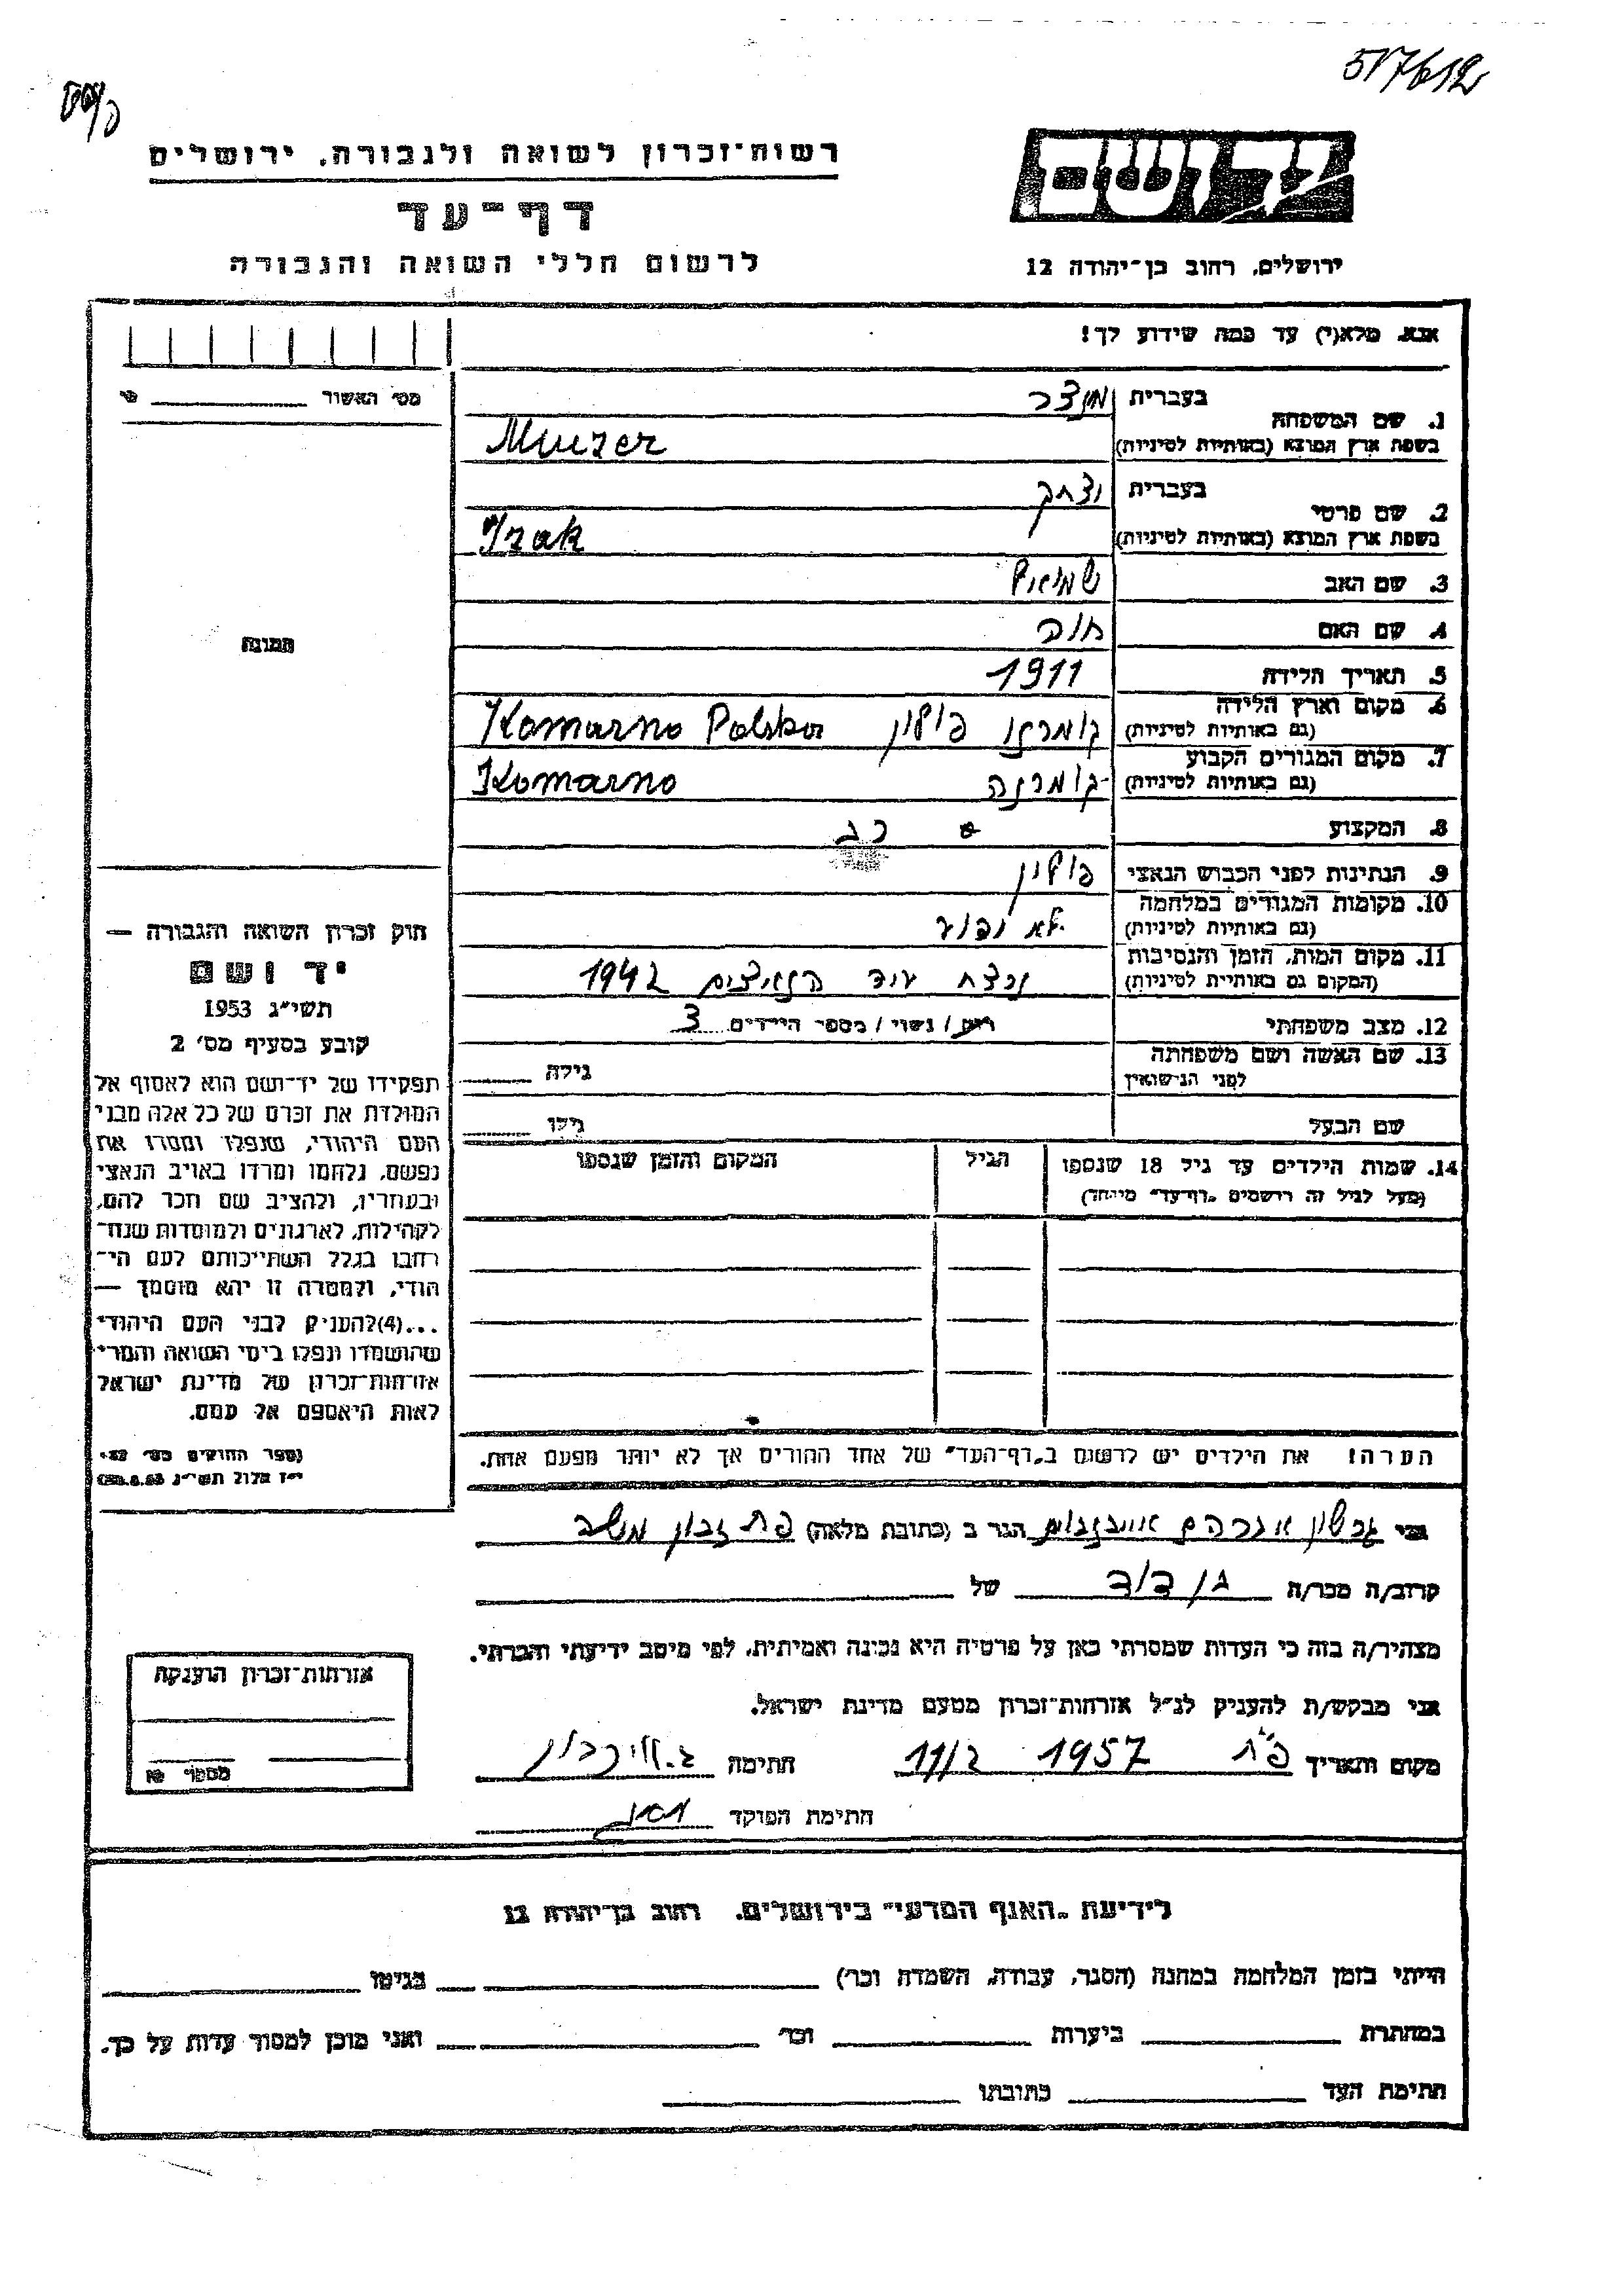 517612
רשות־זכרון לשואה ולגבורה, ירושלים
דף־עד
לרשום חללי השואה והגבורה
יד ושם
ירושלים, רחוב בן־יהודה 12
אנא, מלא(י) עד כמה שידוע לך!
מס' האשור
1. שם המשפחה
בעברית מנצר
בשפת ארץ המוצא (באותיות לטיניות) Munzer
2. שם פרטי
בעברית יצחק
בשפת ארץ המוצא (באותיות לטיניות) Izak
3. שם האב שמואל
4. שם האם חוה
5. תאריך הלידה 1911
6. מקום וארץ הלידה
(גם באותיות לטיניות) קומרנו פולין Komarno Polska
7. מקום המגורים הקבוע
(גם באותיות לטיניות) קומרנה Komarno
8. המקצוע רב
9. הנתינות לפני הכבוש הנאצי פולין
10. מקומות המגורים במלחמה
(גם באותיות לטיניות) לא ידוע
11. מקום המות, הזמן והנסיבות
(המקום גם באותיות לטיניות) נרצח ע״י הנאצים 1942
12. מצב משפחתי רווק / נשוי / מספר הילדים 3
13. שם האשה ושם משפחתה
לפני הנישואין גילה
שם הבעל גילו
14. שמות הילדים עד גיל 18 שנספו הגיל המקום והזמן שנספו
(מעל לגיל זה רושמים „דף־עד" מיוחד)
הערה! את הילדים יש לרשום ב„דף־העד" של אחד ההורים אך לא יותר מפעם אחת.
תמונה
חוק זכרון השואה והגבורה —
יד ושם
תשי״ג 1953
קובע בסעיף מס' 2
תפקידו של יד־ושם הוא לאסוף אל
המולדת את זכרם של כל אלה מבני
העם היהודי, שנפלו ומסרו את
נפשם, נלחמו ומרדו באויב הנאצי
ובעוזריו, ולהציב שם וזכר להם,
לקהילות, לארגונים ולמוסדות שנח־
רבו בגלל השתייכותם לעם הי־
הודי, ולמטרה זו יהא מוסמך —
...(4) להעניק לבני העם היהודי
שהושמדו ונפלו בימי השואה והמרי
אזרחות־זכרון של מדינת ישראל
לאות היאספם אל עמם.
(ספר החוקים מס' 132,
י״ז אלול תשי״ג 28.8.53)
אני גרשון אברהם הגר ב (כתובת מלאה) פת
קרוב/ה מכר/ה בן דוד של
מצהיר/ה בזה כי העדות שמסרתי כאן על פרטיה היא נכונה ואמיתית, לפי מיטב ידיעתי והכרתי.
אני מבקש/ת להעניק לנ״ל אזרחות־זכרון מטעם מדינת ישראל.
מקום ותאריך פ״ת 1957 11/2 חתימה
חתימת הפוקד
אזרחות־זכרון הוענקה
מספר
לידיעת „האגף המדעי" בירושלים, רחוב בן־יהודה 12
הייתי בזמן המלחמה במחנה (הסגר, עבודה, השמדה וכו') בגיטו
במחתרת ביערות וכו' ואני מוכן למסור עדות על כך.
חתימת העד כתובתו